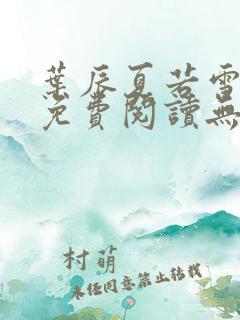 葉辰夏若雪
免費閱讀無
村萌
未經同意禁止轉載